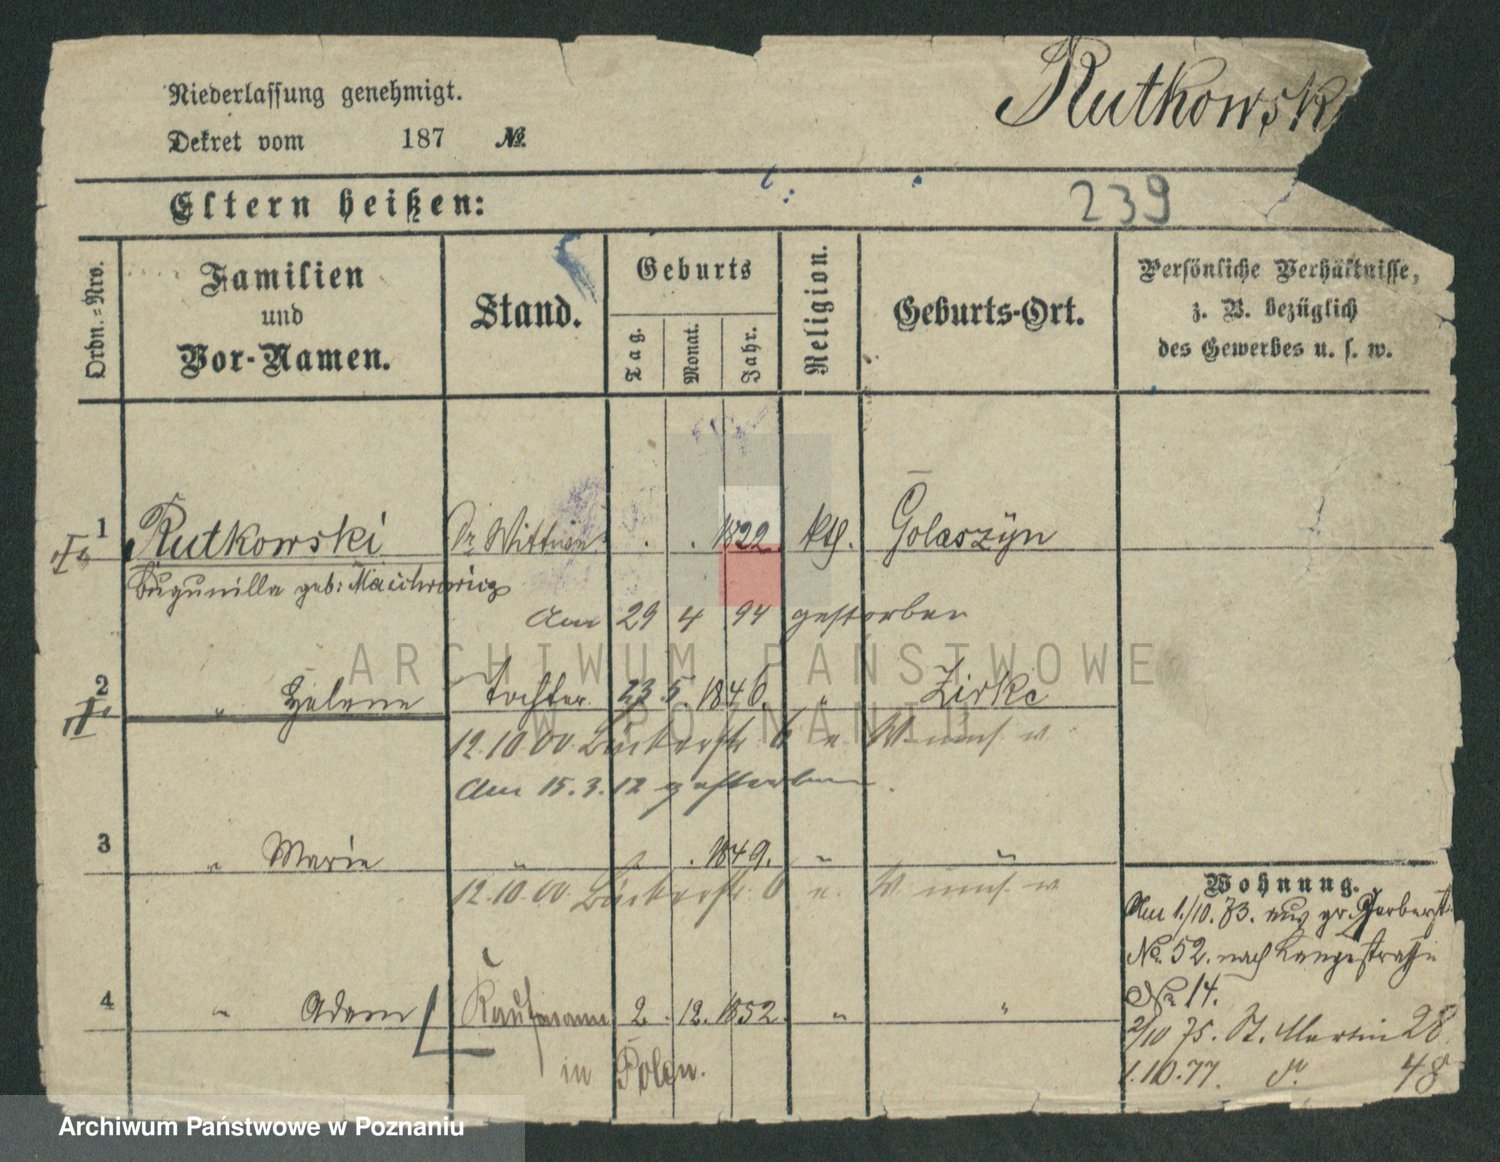 Niederlassung genehmigt.
Rutkowsk
Dekret vom 187 №.
Eltern heißen:
239
Ordn.=Nro.
Familien
und
Vor-Namen.
Stand.
Geburts
Tag.
Monat.
Jahr.
Religion.
Geburts-Ort.
Persönliche Verhältnisse,
z. B. bezüglich
des Gewerbes u. s. w.
1 Rutkowski Dr. 1822 kth. Golaszyn
geb:
Am 29 4 94 gestorben
2 " Helene Tochter 23. 5. 1846. " Zirke
12.10.00. Bäckerstr. 6 u. W
Am 15.3.12 gestorben.
3 " Marie " . 1849. " "
12.10.00. Bäckerstr. 6 u. W
4 " Adam Kaufmann 2. 12. 1852. " "
in Polen.
Wohnung.
Am 1./10. 73. aus gr. Gerberst.
No. 52. nach Langestraße
No. 14.
2/10 75. St. Martin 28.
1.10.77. 48
ARCHIWUM PAŃSTWOWE
W POZNANIU
Archiwum Państwowe w Poznaniu